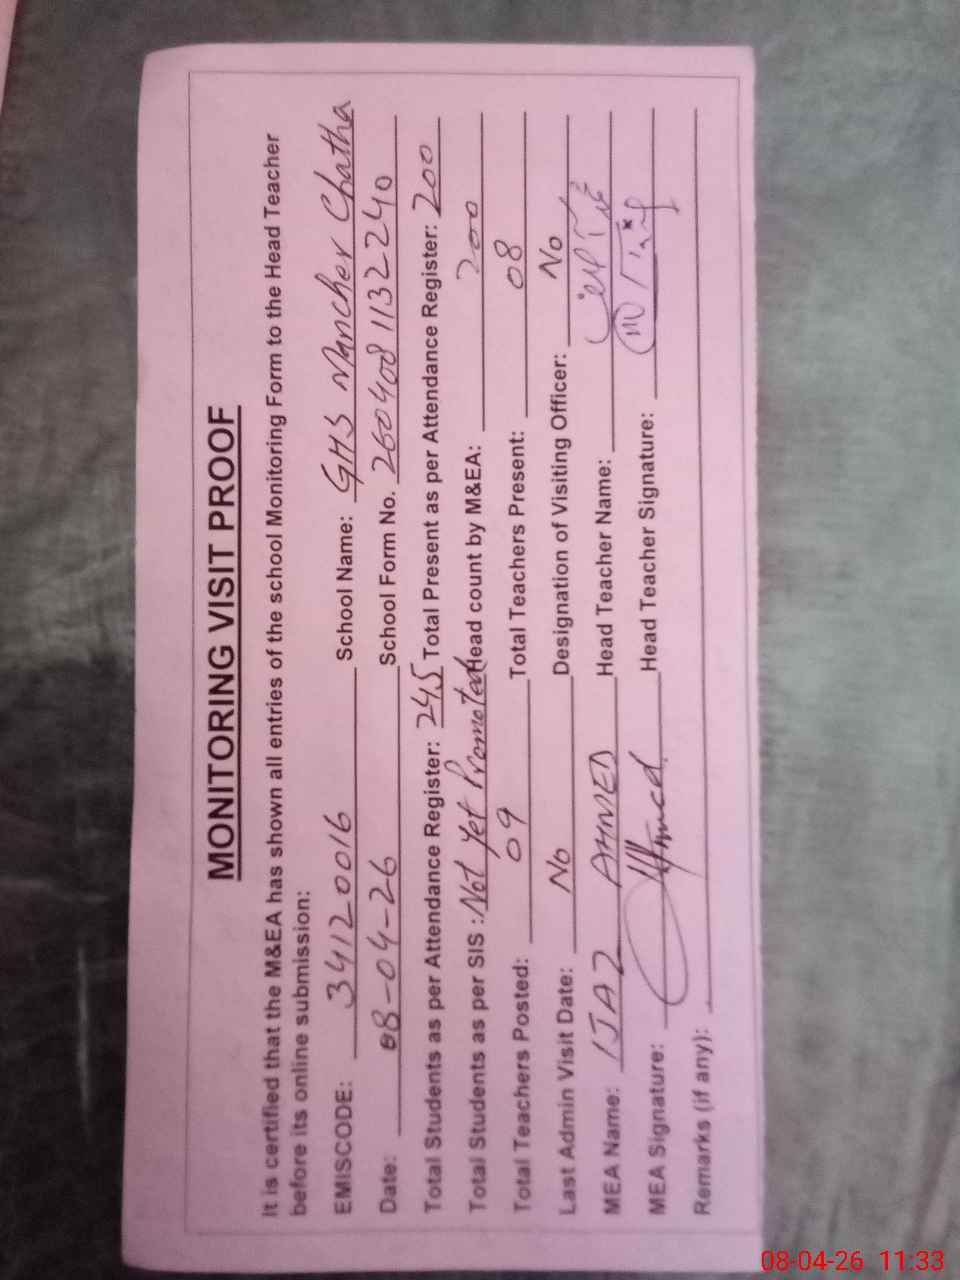 MONITORING VISIT PROOF
It is certified that the M&EA has shown all entries of the school Monitoring Form to the Head Teacher
before its online submission:
EMISCODE: 34120016 School Name: GHS Mancher Chatha
Date: 08-04-26 School Form No. 2604081132240
Total Students as per Attendance Register: 245 Total Present as per Attendance Register: 200
Total Students as per SIS : Not yet Promoted Head count by M&EA: 200
Total Teachers Posted: 09 Total Teachers Present: 08
Last Admin Visit Date: No Designation of Visiting Officer: No
MEA Name: IJAZ AHMED Head Teacher Name:
MEA Signature: Ahmed Head Teacher Signature:
Remarks (if any):
08-04-26 11:33